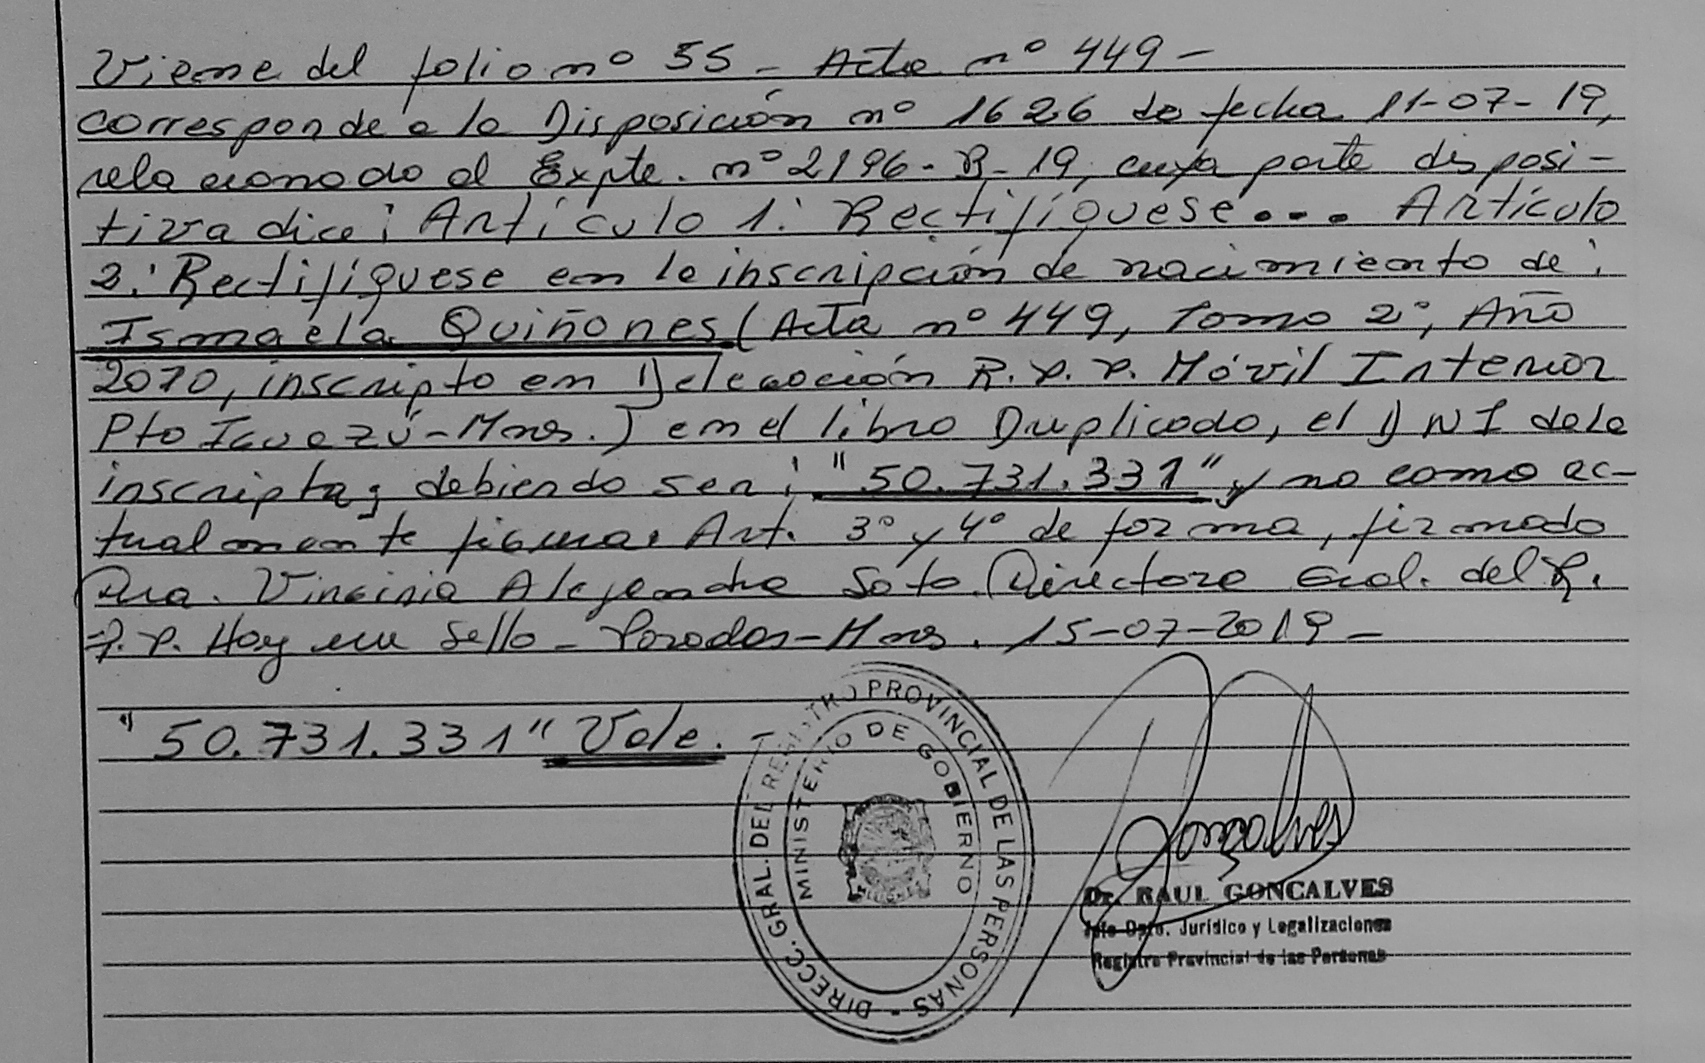 Viene del folio nº 55 - Acta nº 449 -
corresponde a la Disposición nº 1626 de fecha 11-07-19,
relacionado al Expte. nº 2196-R-19, cuya parte disposi-
tiva dice: Artículo 1: Rectifíquese... Artículo
2: Rectifíquese en la inscripción de nacimiento de:
Ismaela Quiñones (Acta nº 449, Tomo 2º, Año
2010, inscripto en Delegación R.P.P. Móvil Interior
Pto Iguazú-Mnes.) en el libro Duplicado, el DNI de la
inscripta; debiendo ser: "50.731.331" y no como ac-
tualmente figura. Art. 3º y 4º de forma, firmado
Dra. Virginia Alejandra Soto Directora Gral. del R.
P. P. Hay un Sello - Posadas-Mnes. 15-07-2019 -
"50.731.331" Vale. -
DIRECC. GRAL. DEL REGISTRO PROVINCIAL DE LAS PERSONAS -
MINISTERIO DE GOBIERNO
MISIONES
Goncalves
Dr. RAUL GONCALVES
Jefe Dpto. Jurídico y Legalizaciones
Registro Provincial de las Personas